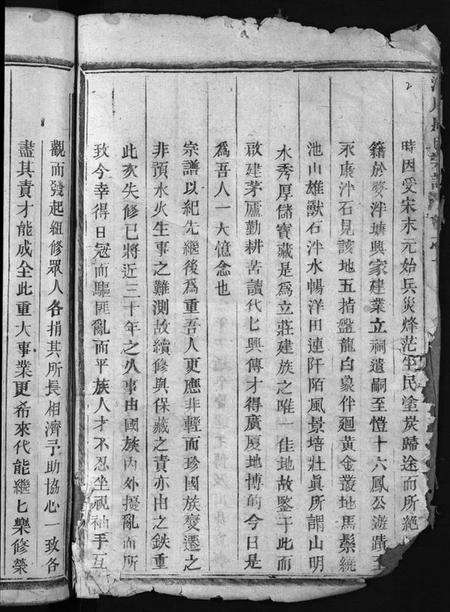 時因受宋末元始兵災烽茫生民塗炭歸途而所絕
籍於麥泮塘與家建業立祠遺嗣至愷十六鳳公遊蹟至
來康泮石見該地五指盤龍白象伴廻黃金叢地馬鬃繞
池山雄獸石泮水暢洋田連阡陌風景培壯眞所謂山明
水秀厚儲寳藏是爲立莊建族之唯一佳地故鑒于此而
啟建茅廬勤耕苦讀代匕興傳才得廣厦地博的今日是
爲吾人一大憶念也
宗譜以紀先繼後爲重吾人更應非輕而珍國族變遷之
非預水火生事之難測故續修與保藏之責亦由之鉄重
此亥失修已將近三十年之久事由國族內外擾亂而所
致今幸得日冠而驅匪亂而平族人才不忍坐視袖手互
觀而發起組修眾人各捐其所長相濟予助協心一致各
盡其責才能成全此重大事業更希來代能繼匕樂修榮